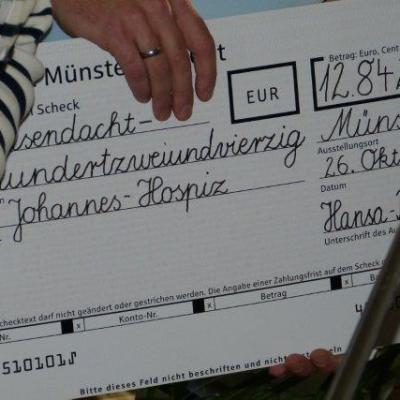 Münste t
Scheck
Betrag: Euro, Cent
EUR
12.842
sendacht-
Müns
undertzweiundvierzig
Ausstellungsort
26. Okt
Johannes-Hospiz
Datum
Hansa-
Unterschrift des Au
schecktext darf nicht geändert oder gestrichen werden. Die Angabe einer Zahlungsfrist auf dem Scheck g
Nr. x Konto-Nr. x Betrag x Ba
510101
Bitte dieses Feld nicht beschreiben und nicht